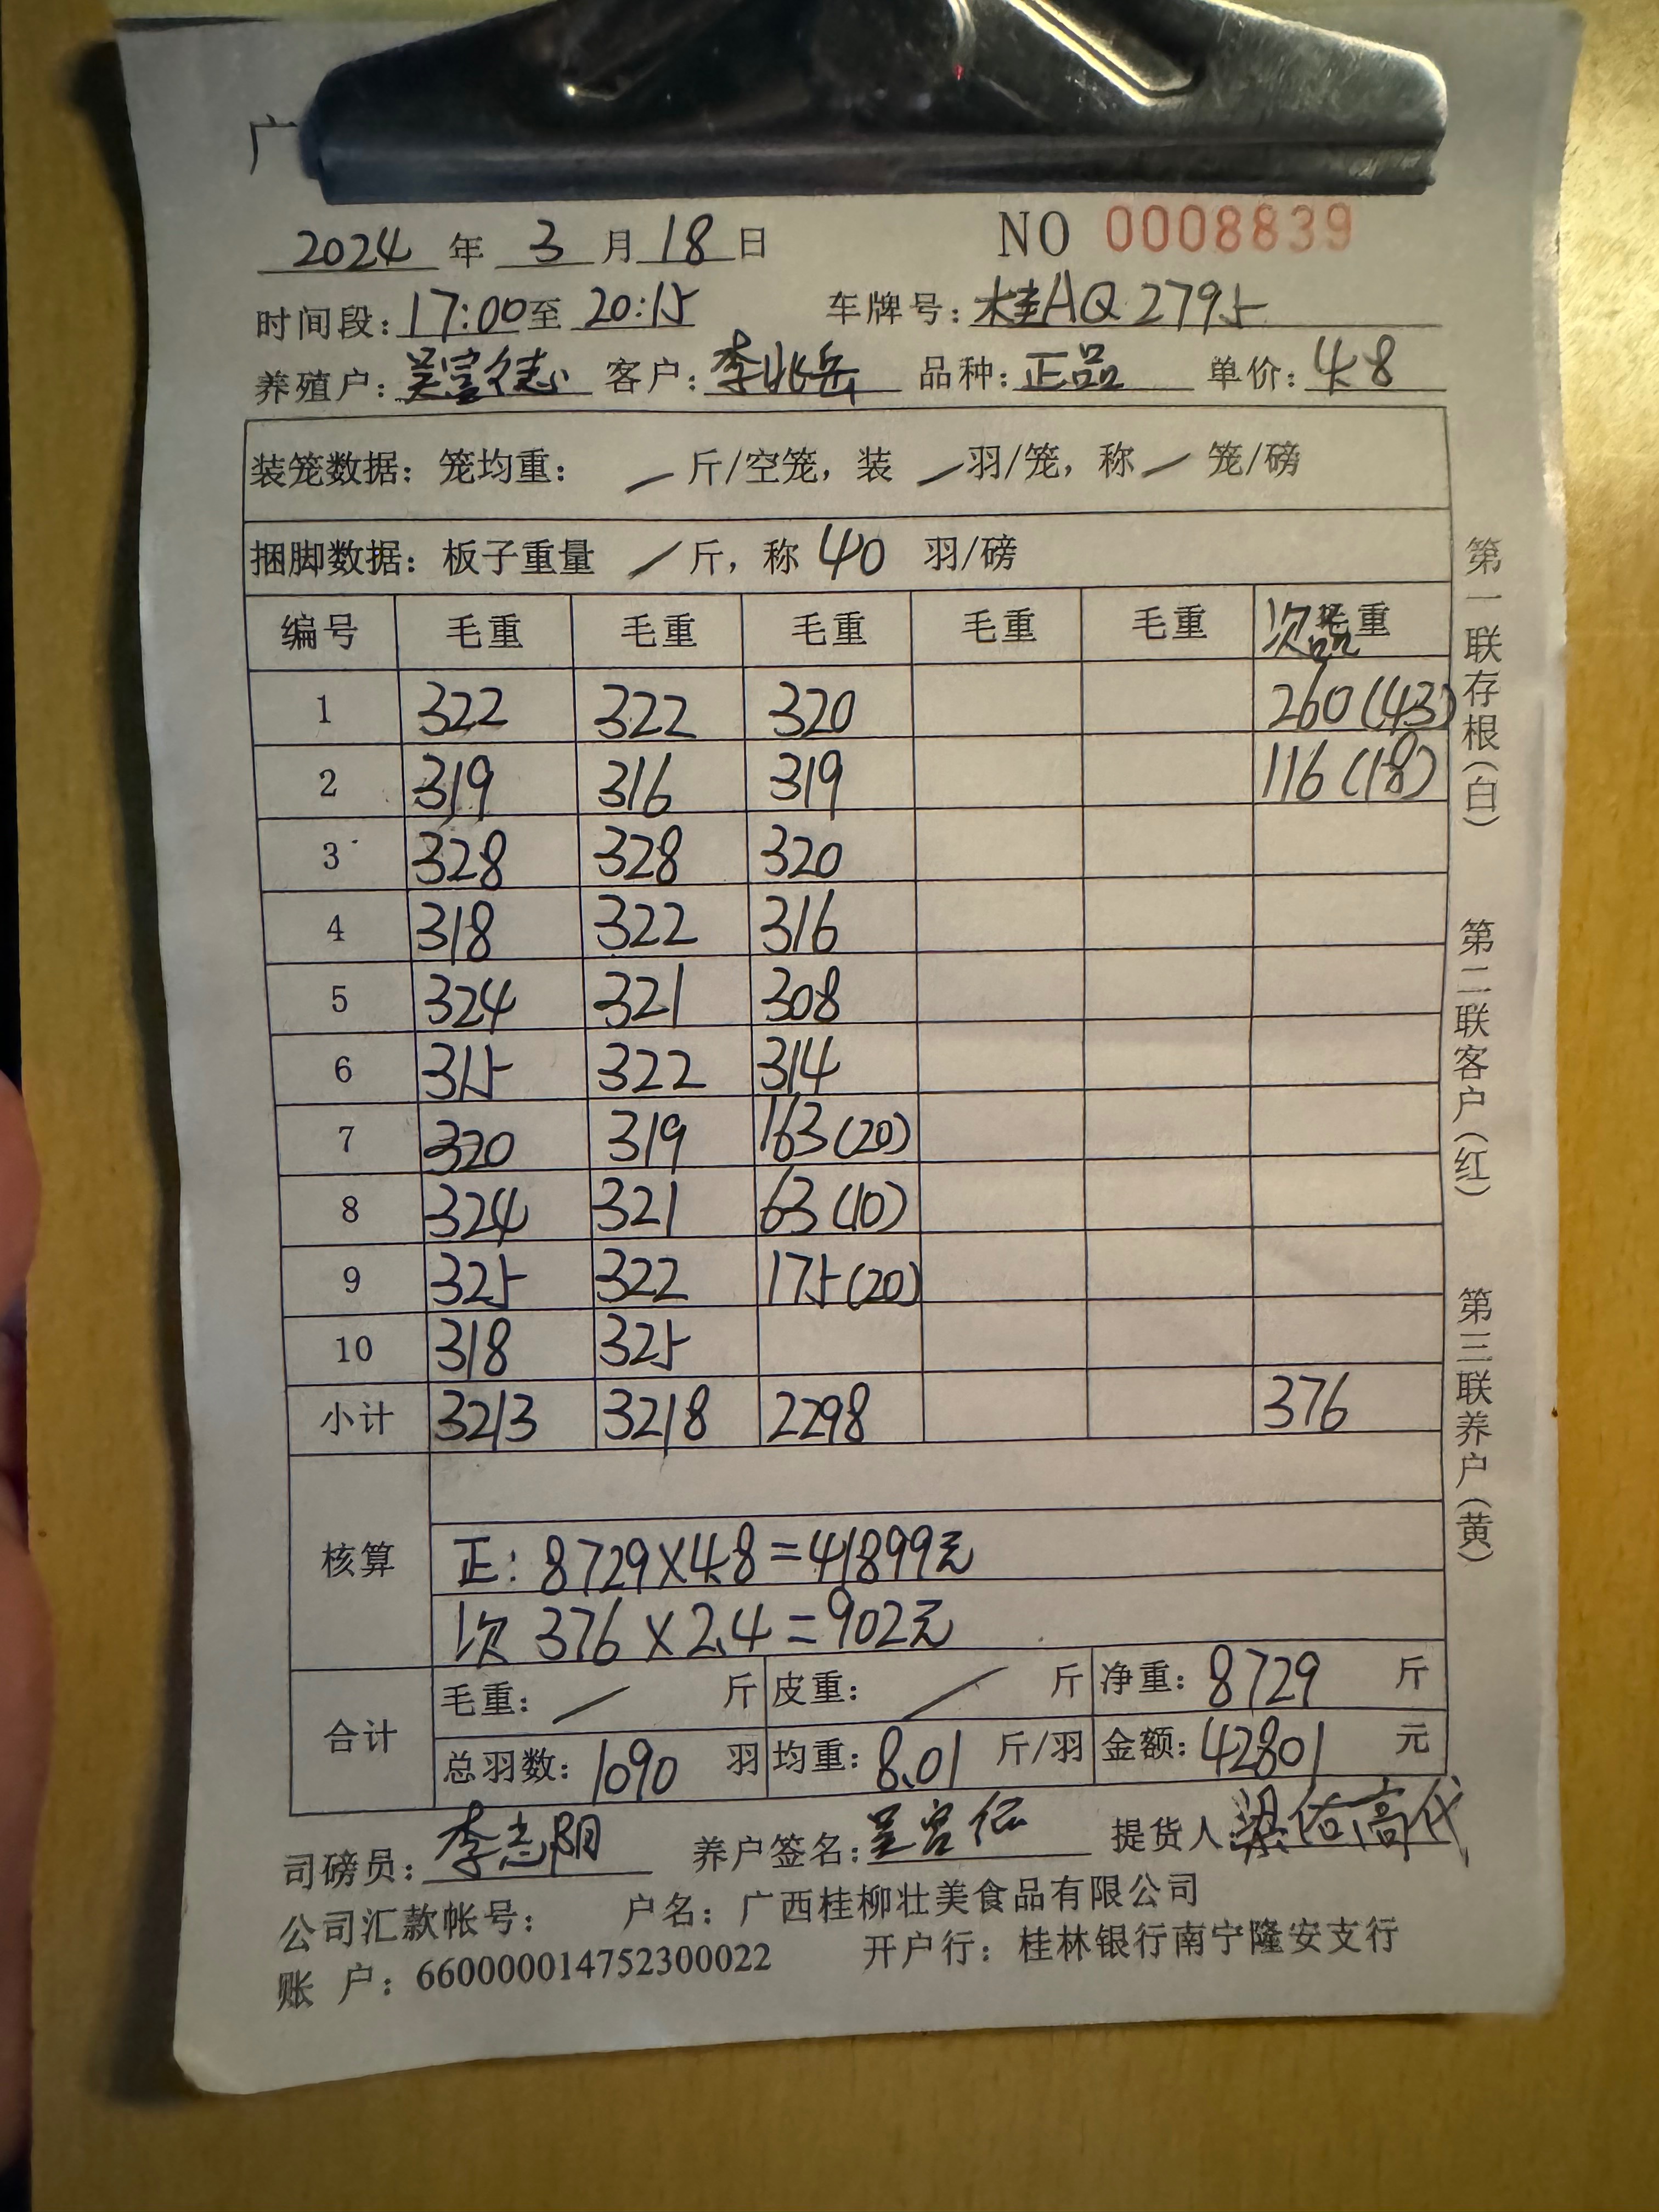 广
2024 年 3 月 18 日 NO 0008839
时间段: 17:00 至 20:15 车牌号: 桂AQ2795
养殖户: 吴宣德 客户: 李兆岳 品种: 正品 单价: 4.8
装笼数据: 笼均重: / 斤/空笼, 装 / 羽/笼, 称 / 笼/磅
捆脚数据: 板子重量 / 斤, 称 40 羽/磅
编号 毛重 毛重 毛重 毛重 毛重 次品 毛重
1 322 322 320 260(43)
2 319 316 319 116(18)
3 328 328 320
4 318 322 316
5 324 321 308
6 315 322 314
7 320 319 163(20)
8 324 321 63(10)
9 325 322 175(20)
10 318 325
小计 3213 3218 2298 376
核算
正: 8729×4.8=41899元
次 376×2.4=902元
合计
毛重: / 斤 皮重: / 斤 净重: 8729 斤
总羽数: 1090 羽 均重: 8.01 斤/羽 金额: 42801 元
司磅员: 李志阳 养户签名: 提货人:
公司汇款帐号: 户名: 广西桂柳壮美食品有限公司
账 户: 660000014752300022 开户行: 桂林银行南宁隆安支行
第一联存根(白) 第二联客户(红) 第三联养户(黄)